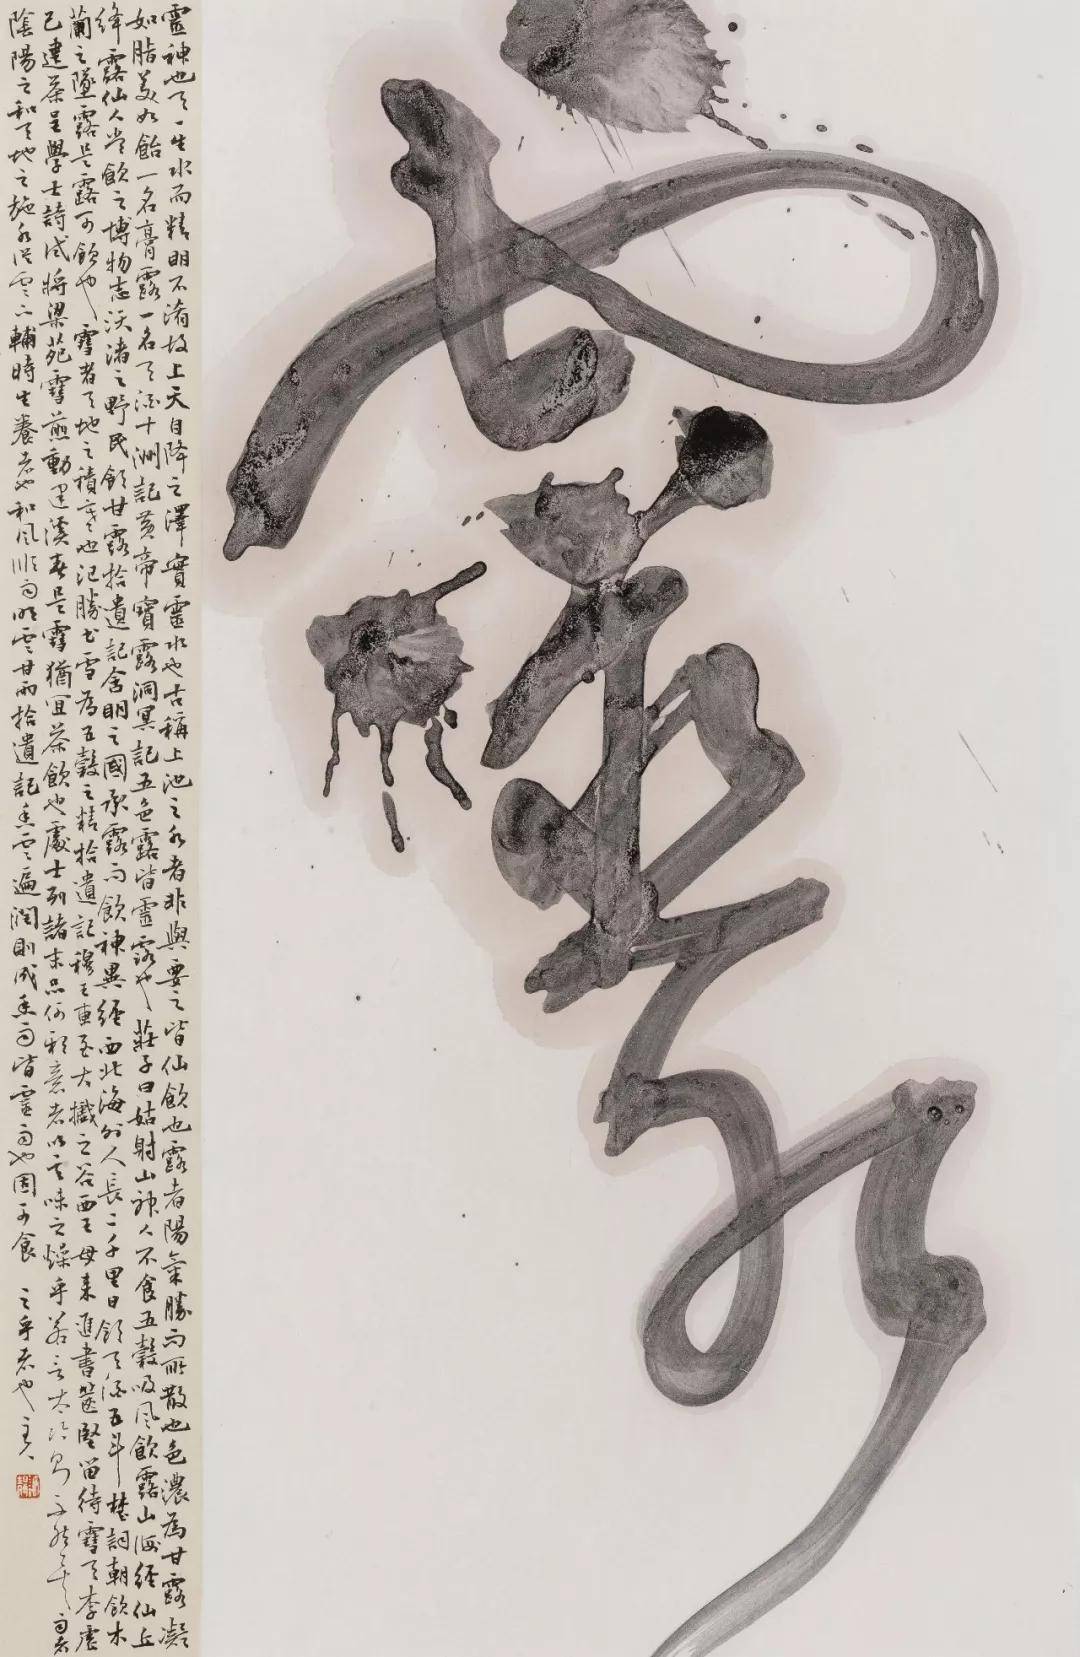 靈神也天一生水而精明不淆故上天自降之澤實靈水也古稱上池之水者非與要之皆仙飲也露者陽氣勝而所散也色濃為甘露凝
如脂美如飴一名膏露一名天酒十洲記黃帝寶露洞冥記五色露皆靈露也莊子曰姑射山神人不食五穀吸風飲露山海經仙丘
絳露仙人常飲之博物志沃渚之野民飲甘露拾遺記含明之國承露而飲神異經西北海外人長二千里日飲天酒五斗楚詞朝飲木
蘭之墜露是露可飲也雪者天地之積寒也氾勝書雪為五穀之精拾遺記穆王東至大擨之谷西王母來進嵰州甜雪是靈雪也陶穀取雪水烹團茶而丁謂煎茶詩痛惜藏書篋堅留待雪天李虛
己建茶呈學士詩試將梁苑雪煎動建溪春是雪猶宜茶飲也處士列諸末品何邪意者以其味之燥乎若言太冷則不然矣雨者
陰陽之和天地之施水從雲下輔時生養者也和風順雨明雲甘雨拾遺記香雲遍潤則成香雨皆靈雨也固可食 之乎者也主人